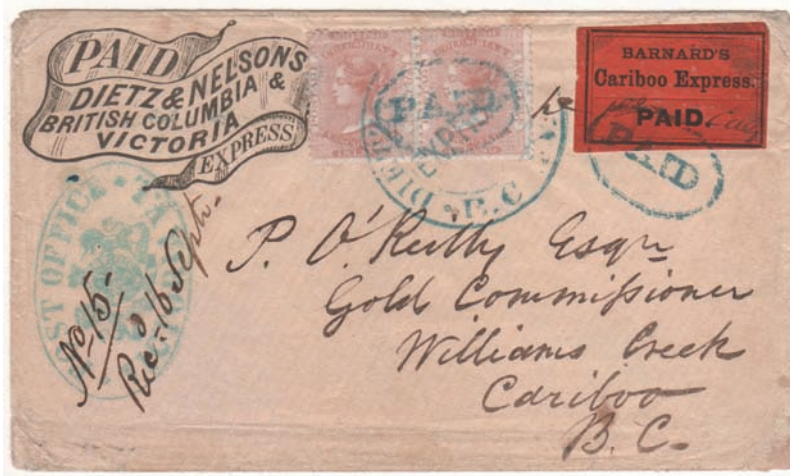 PAID
DIETZ & NELSONS
BRITISH COLUMBIA &
VICTORIA
EXPRESS
BARNARD'S
Cariboo Express.
PAID.
PAID
DIETZ
B.C
PAID
POST OFFICE
No 15.
Rec.d 16 Septr.
P. O'Reilly Esqre
Gold Commissioner
Williams Creek
Cariboo
B. C.